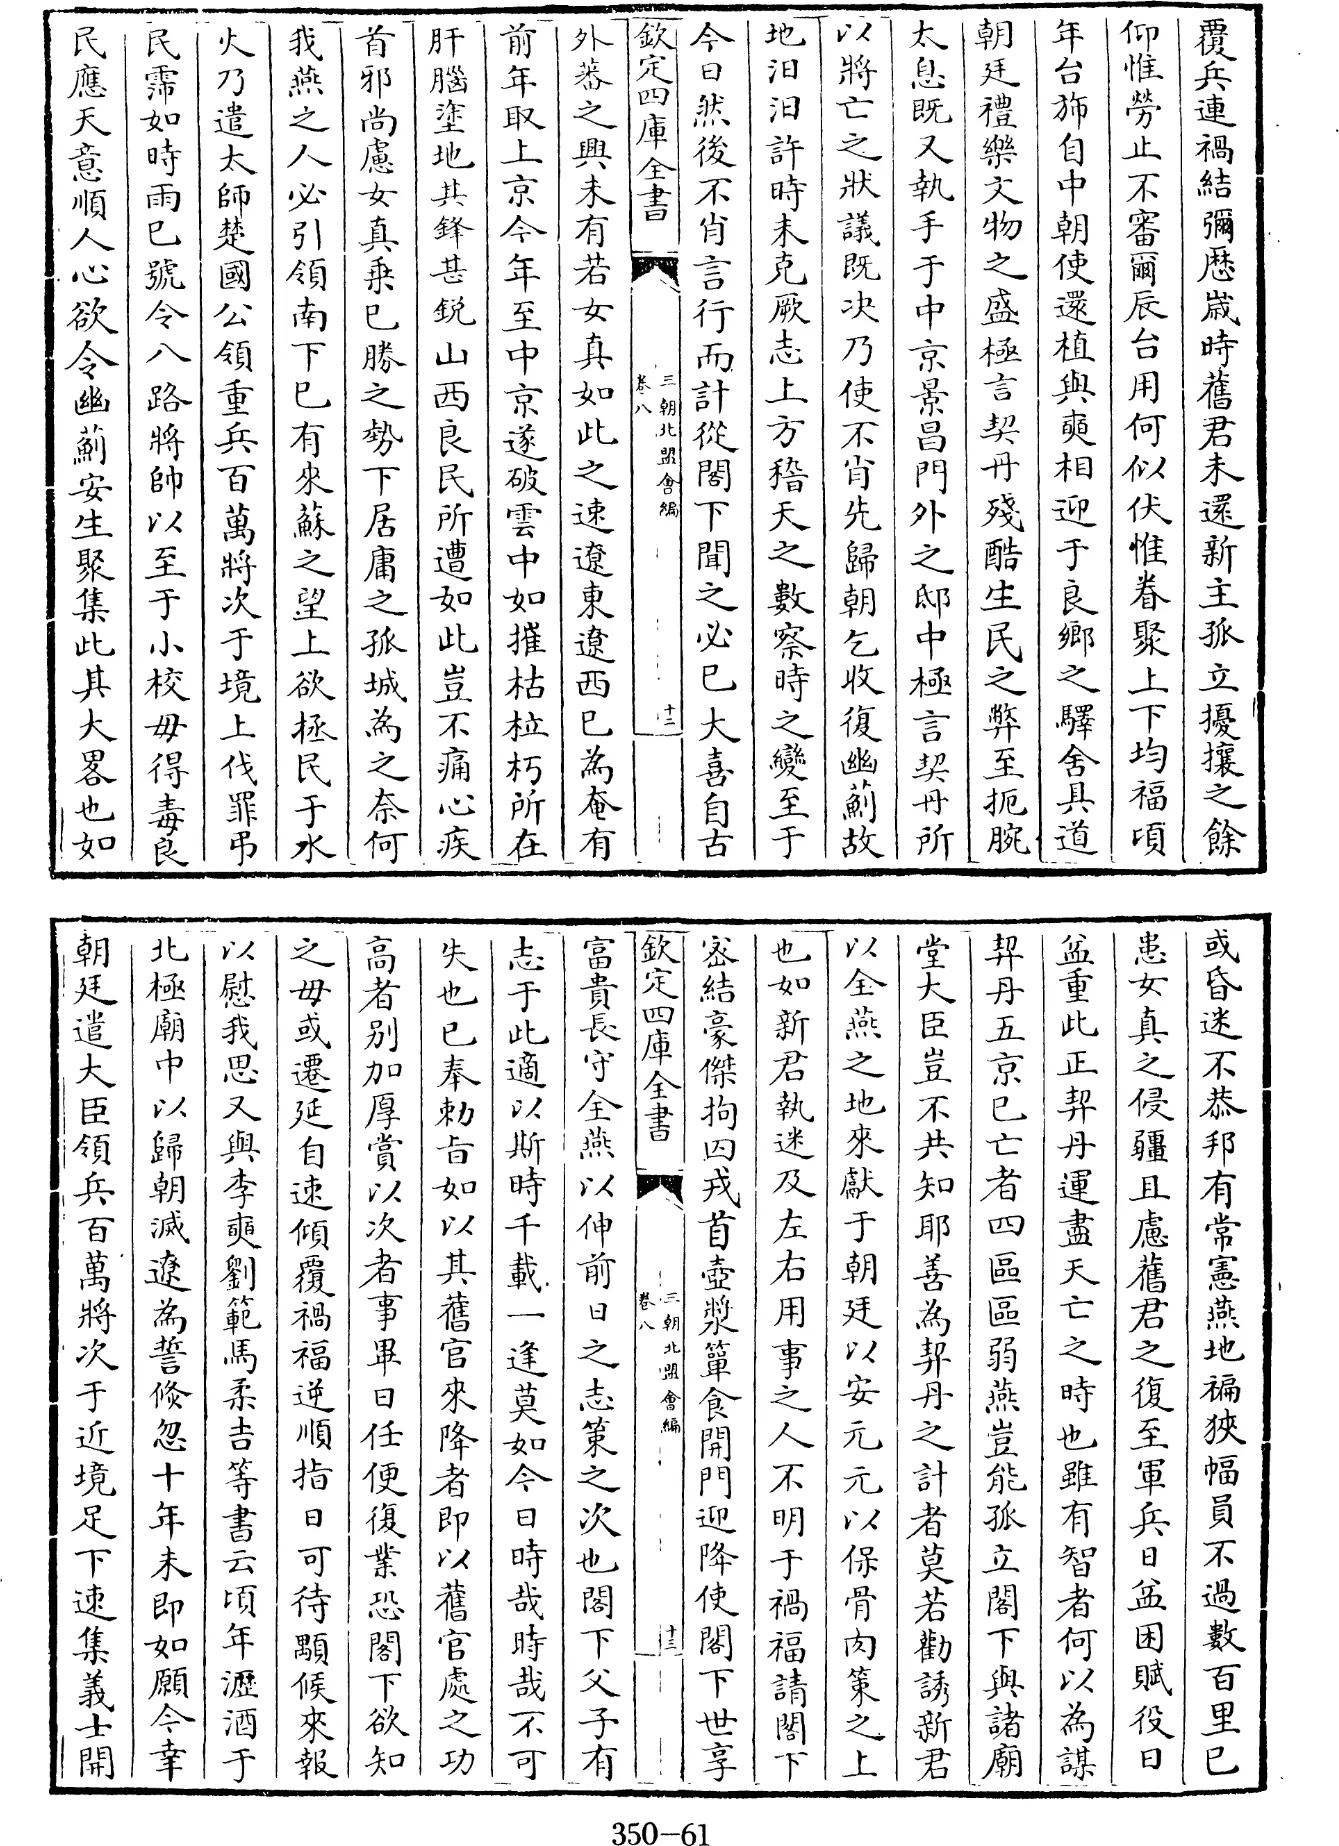 覆兵連禍結彌歴歳時舊君未還新主孤立擾攘之餘
仰惟勞止不審爾辰台用何似伏惟眷聚上下均福頃
年台斾自中朝使還植與奭相迎于良鄉之驛舎具道
朝廷禮樂文物之盛極言契丹殘酷生民之弊至扼腕
太息既又執手于中京景昌門外之邸中極言契丹所
以將亡之狀議既决乃使不肖先歸朝乞收復幽薊故
地汨汨許時未克厥志上方稽天之數察時之變至于
今日然後不肖言行而計從閣下聞之必已大喜自古
欽定四庫全書
三朝北盟會編
卷八
十二
外蕃之興未有若女真如此之速遼東遼西已為奄有
前年取上京今年至中京遂破雲中如摧枯拉朽所在
肝腦塗地其鋒甚鋭山西良民所遭如此豈不痛心疾
首邪尚慮女真乗已勝之勢下居庸之孤城為之奈何
我燕之人必引領南下已有來蘇之望上欲拯民于水
火乃遣太師楚國公領重兵百萬將次于境上伐罪弔
民霈如時雨已號令八路將帥以至于小校毋得毒良
民應天意順人心欲令幽薊安生聚集此其大畧也如
或昏迷不恭邦有常憲燕地褊狹幅員不過數百里已
患女真之侵疆且慮舊君之復至軍兵日益困賦役日
益重此正契丹運盡天亡之時也雖有智者何以為謀
契丹五京已亡者四區區弱燕豈能孤立閣下與諸廟
堂大臣豈不共知耶善為契丹之計者莫若勸誘新君
以全燕之地來獻于朝廷以安元元以保骨肉策之上
也如新君執迷及左右用事之人不明于禍福請閣下
宻結豪傑拘囚戎首壺漿簞食開門迎降使閣下世享
欽定四庫全書
三朝北盟會編
卷八
十三
富貴長守全燕以伸前日之志策之次也閣下父子有
志于此適以斯時千載一逢莫如今日時哉時哉不可
失也已奉勅旨如以其舊官來降者即以舊官處之功
高者别加厚賞以次者事畢日任便復業恐閣下欲知
之毋或遷延自速傾覆禍福逆順指日可待顒候來報
以慰我思又與李奭劉範馬柔吉等書云頃年瀝酒于
北極廟中以歸朝滅遼為誓倐忽十年未即如願今幸
朝廷遣大臣領兵百萬將次于近境足下速集義士開
350-61